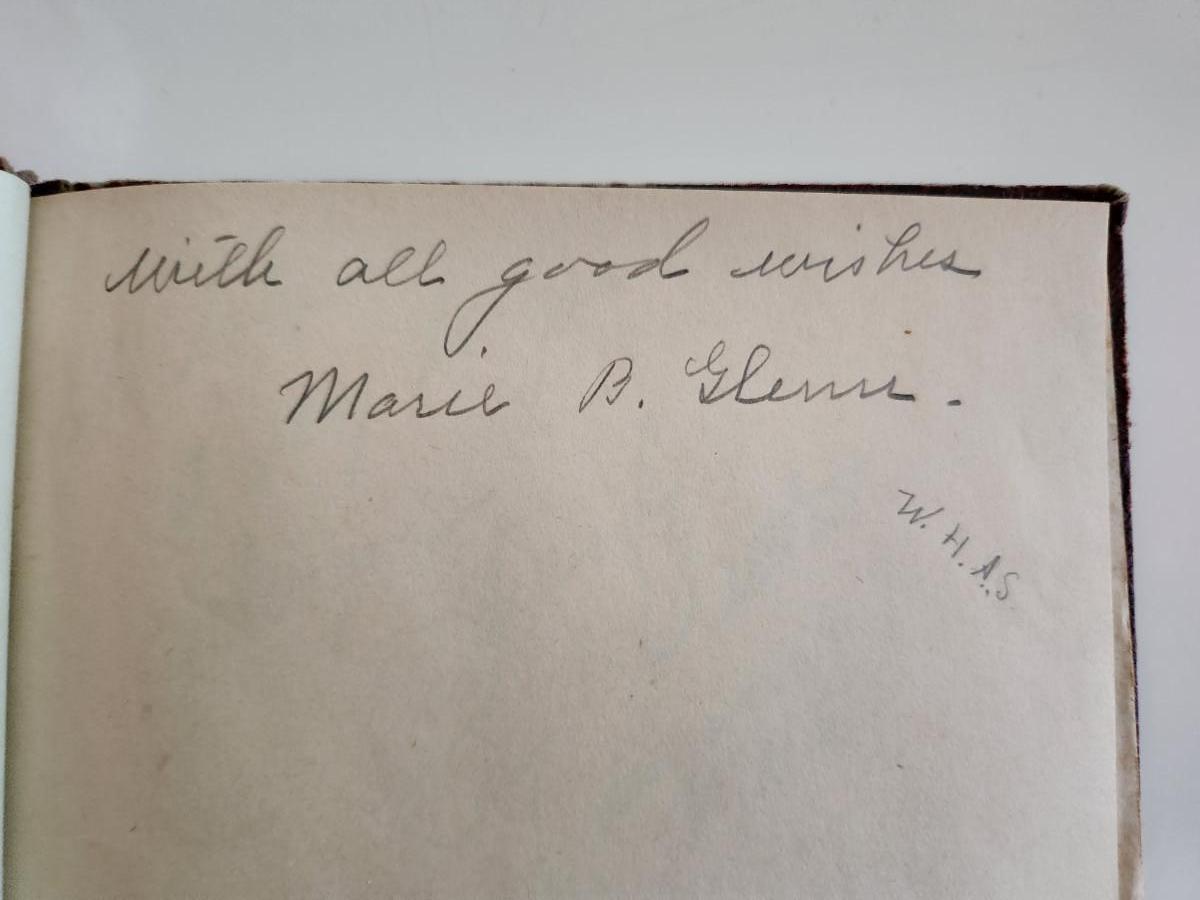 with all good wishes
Marie B. Glenn.
W. H. A. S.